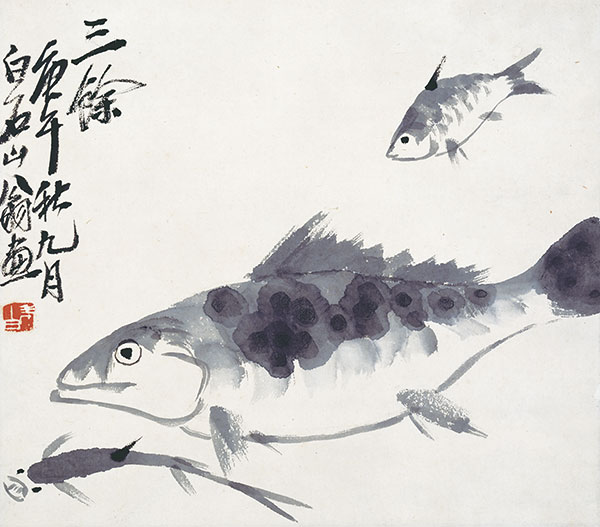 三餘
庚午秋九月
白石山翁畫